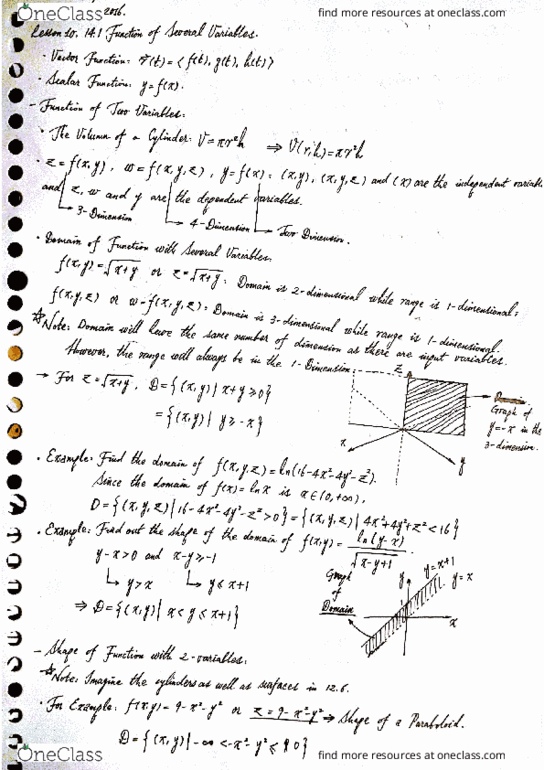 OneClass find more resources at oneclass.com
2016.
Lesson 10. 14.1 Function of Several Variables.
· Vector Function: r(t) = ⟨f(t), g(t), h(t)⟩
· Scalar Function: y = f(x).
- Function of Two Variables:
· The Volumn of a Cylinder: V = πr²h ⇒ V(r,h) = πr²h
· z = f(x,y), w = f(x,y,z), y = f(x): (x,y), (x,y,z) and (x) are the independent variable
and z, w and y are the dependent variables.
↳ 3-Dimension ↳ 4-Dimension ↳ Two Dimension.
· Domain of Function with Several Variables.
f(x,y) = √x+y or z = √x+y: Domain is 2-dimensional while range is 1-dimensional;
f(x,y,z) or w = f(x,y,z): Domain is 3-dimensional while range is 1-dimensional.
☆Note: Domain will have the same number of dimension as there are input variables.
However, the range will always be in the 1-Dimension.
→ For z = √x+y, D = {(x,y) | x+y ≥ 0}
= {(x,y) | y ≥ -x}
z
x
y
Domain
Graph of
y = -x in the
3-dimensive.
· Example: Find the domain of f(x,y,z) = ln(16-4x²-4y²-z²).
Since the domain of f(x) = ln x is x ∈ (0,+∞),
D = {(x,y,z) | 16-4x²-4y²-z² > 0} = {(x,y,z) | 4x²+4y²+z² < 16}
· Example: Find out the shape of the domain of f(x,y) = ln(y-x) / √x-y+1
y-x > 0 and x-y ≥ -1
↳ y > x ↳ y ≤ x+1
⇒ D = {(x,y) | x < y ≤ x+1}
Graph
of
Domain
y
y = x+1
y = x
x
- Shape of Function with 2-variables:
☆Note: Imagine the cylinders as well as surfaces in 12.6.
· For Example: f(x,y) = 9-x²-y² or z = 9-x²-y² → Shape of a Paraboloid.
D = {(x,y) | -∞ < -x²-y² ≤ 0}
OneClass find more resources at oneclass.com